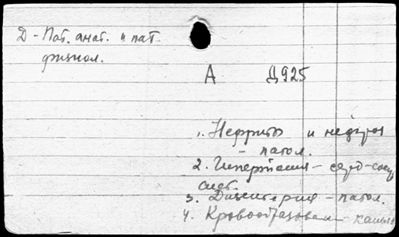 Д - Пат. анат. и пат.
физиол.
А Д925
1. Нефриты и нефрозы
- патол.
2. Гипертония - серд-сосуд
сист.
3. Дизентерия - патол.
4. Кровообразован -